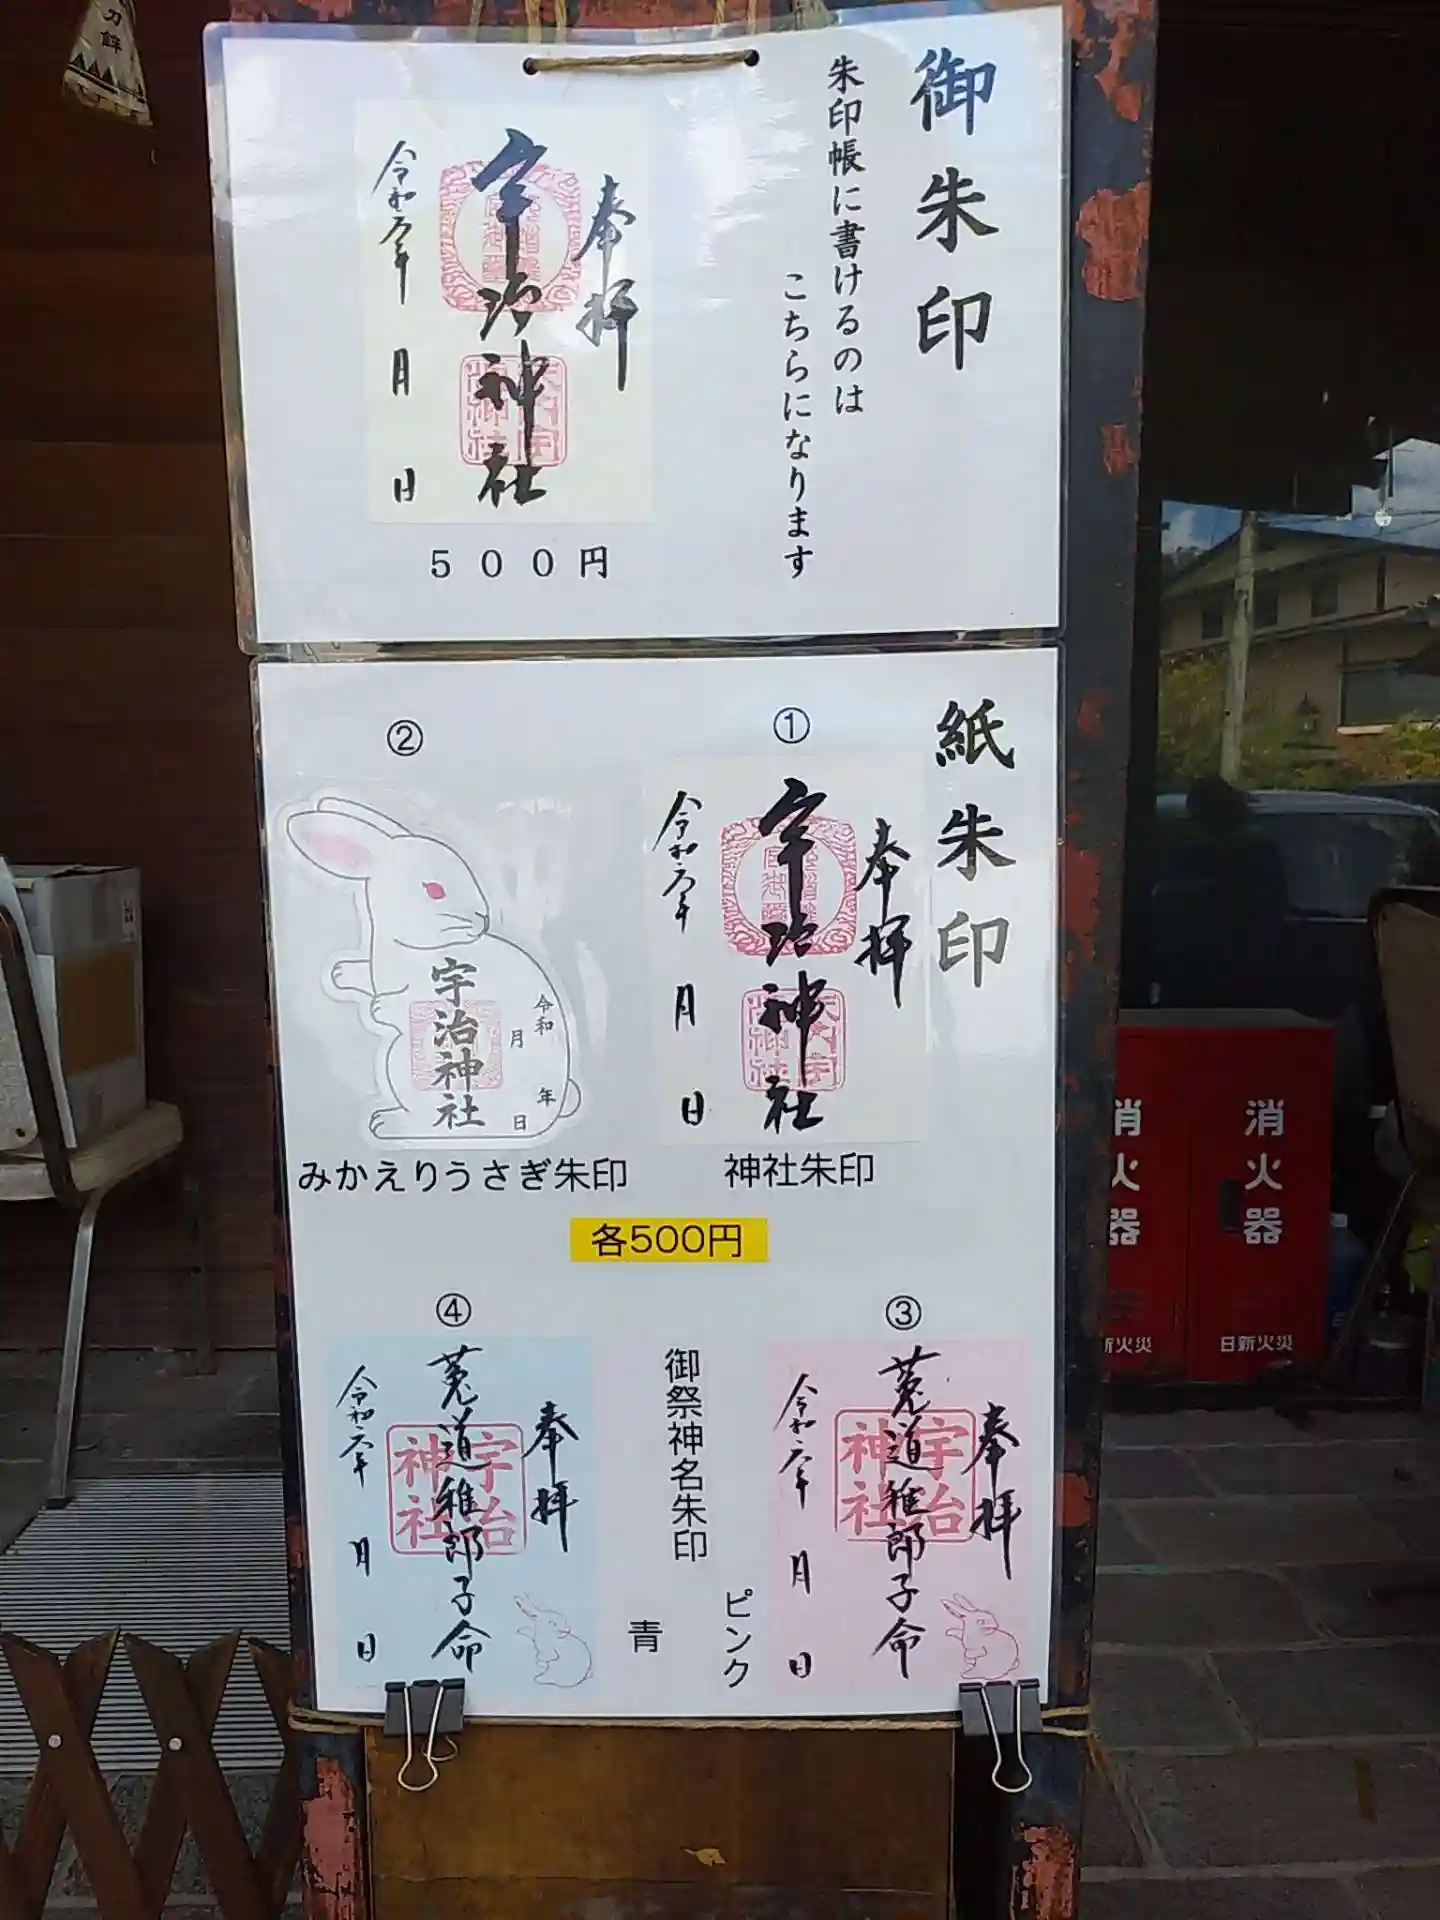 刀鉾
御朱印
朱印帳に書けるのは
こちらになります
奉拝
宇治神社
令和六年 月 日
500円
紙朱印
①
奉拝
宇治神社
令和六年 月 日
神社朱印
②
宇治神社
令和 年
月 日
みかえりうさぎ朱印
各500円
③
奉拝
菟道稚郎子命
宇治神社
令和六年 月 日
御祭神名朱印
ピンク
青
④
奉拝
菟道稚郎子命
宇治神社
令和六年 月 日
消火器
消火器
日新火災
新火災